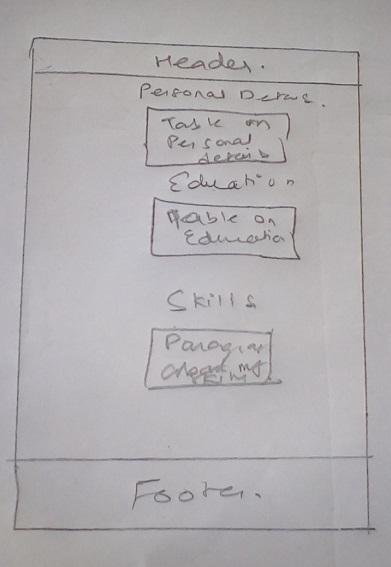 Header.
Personal Details.
Table on
Personal
details
Education
Table on
Education
Skills
Paragrap
about my
skills
Footer.